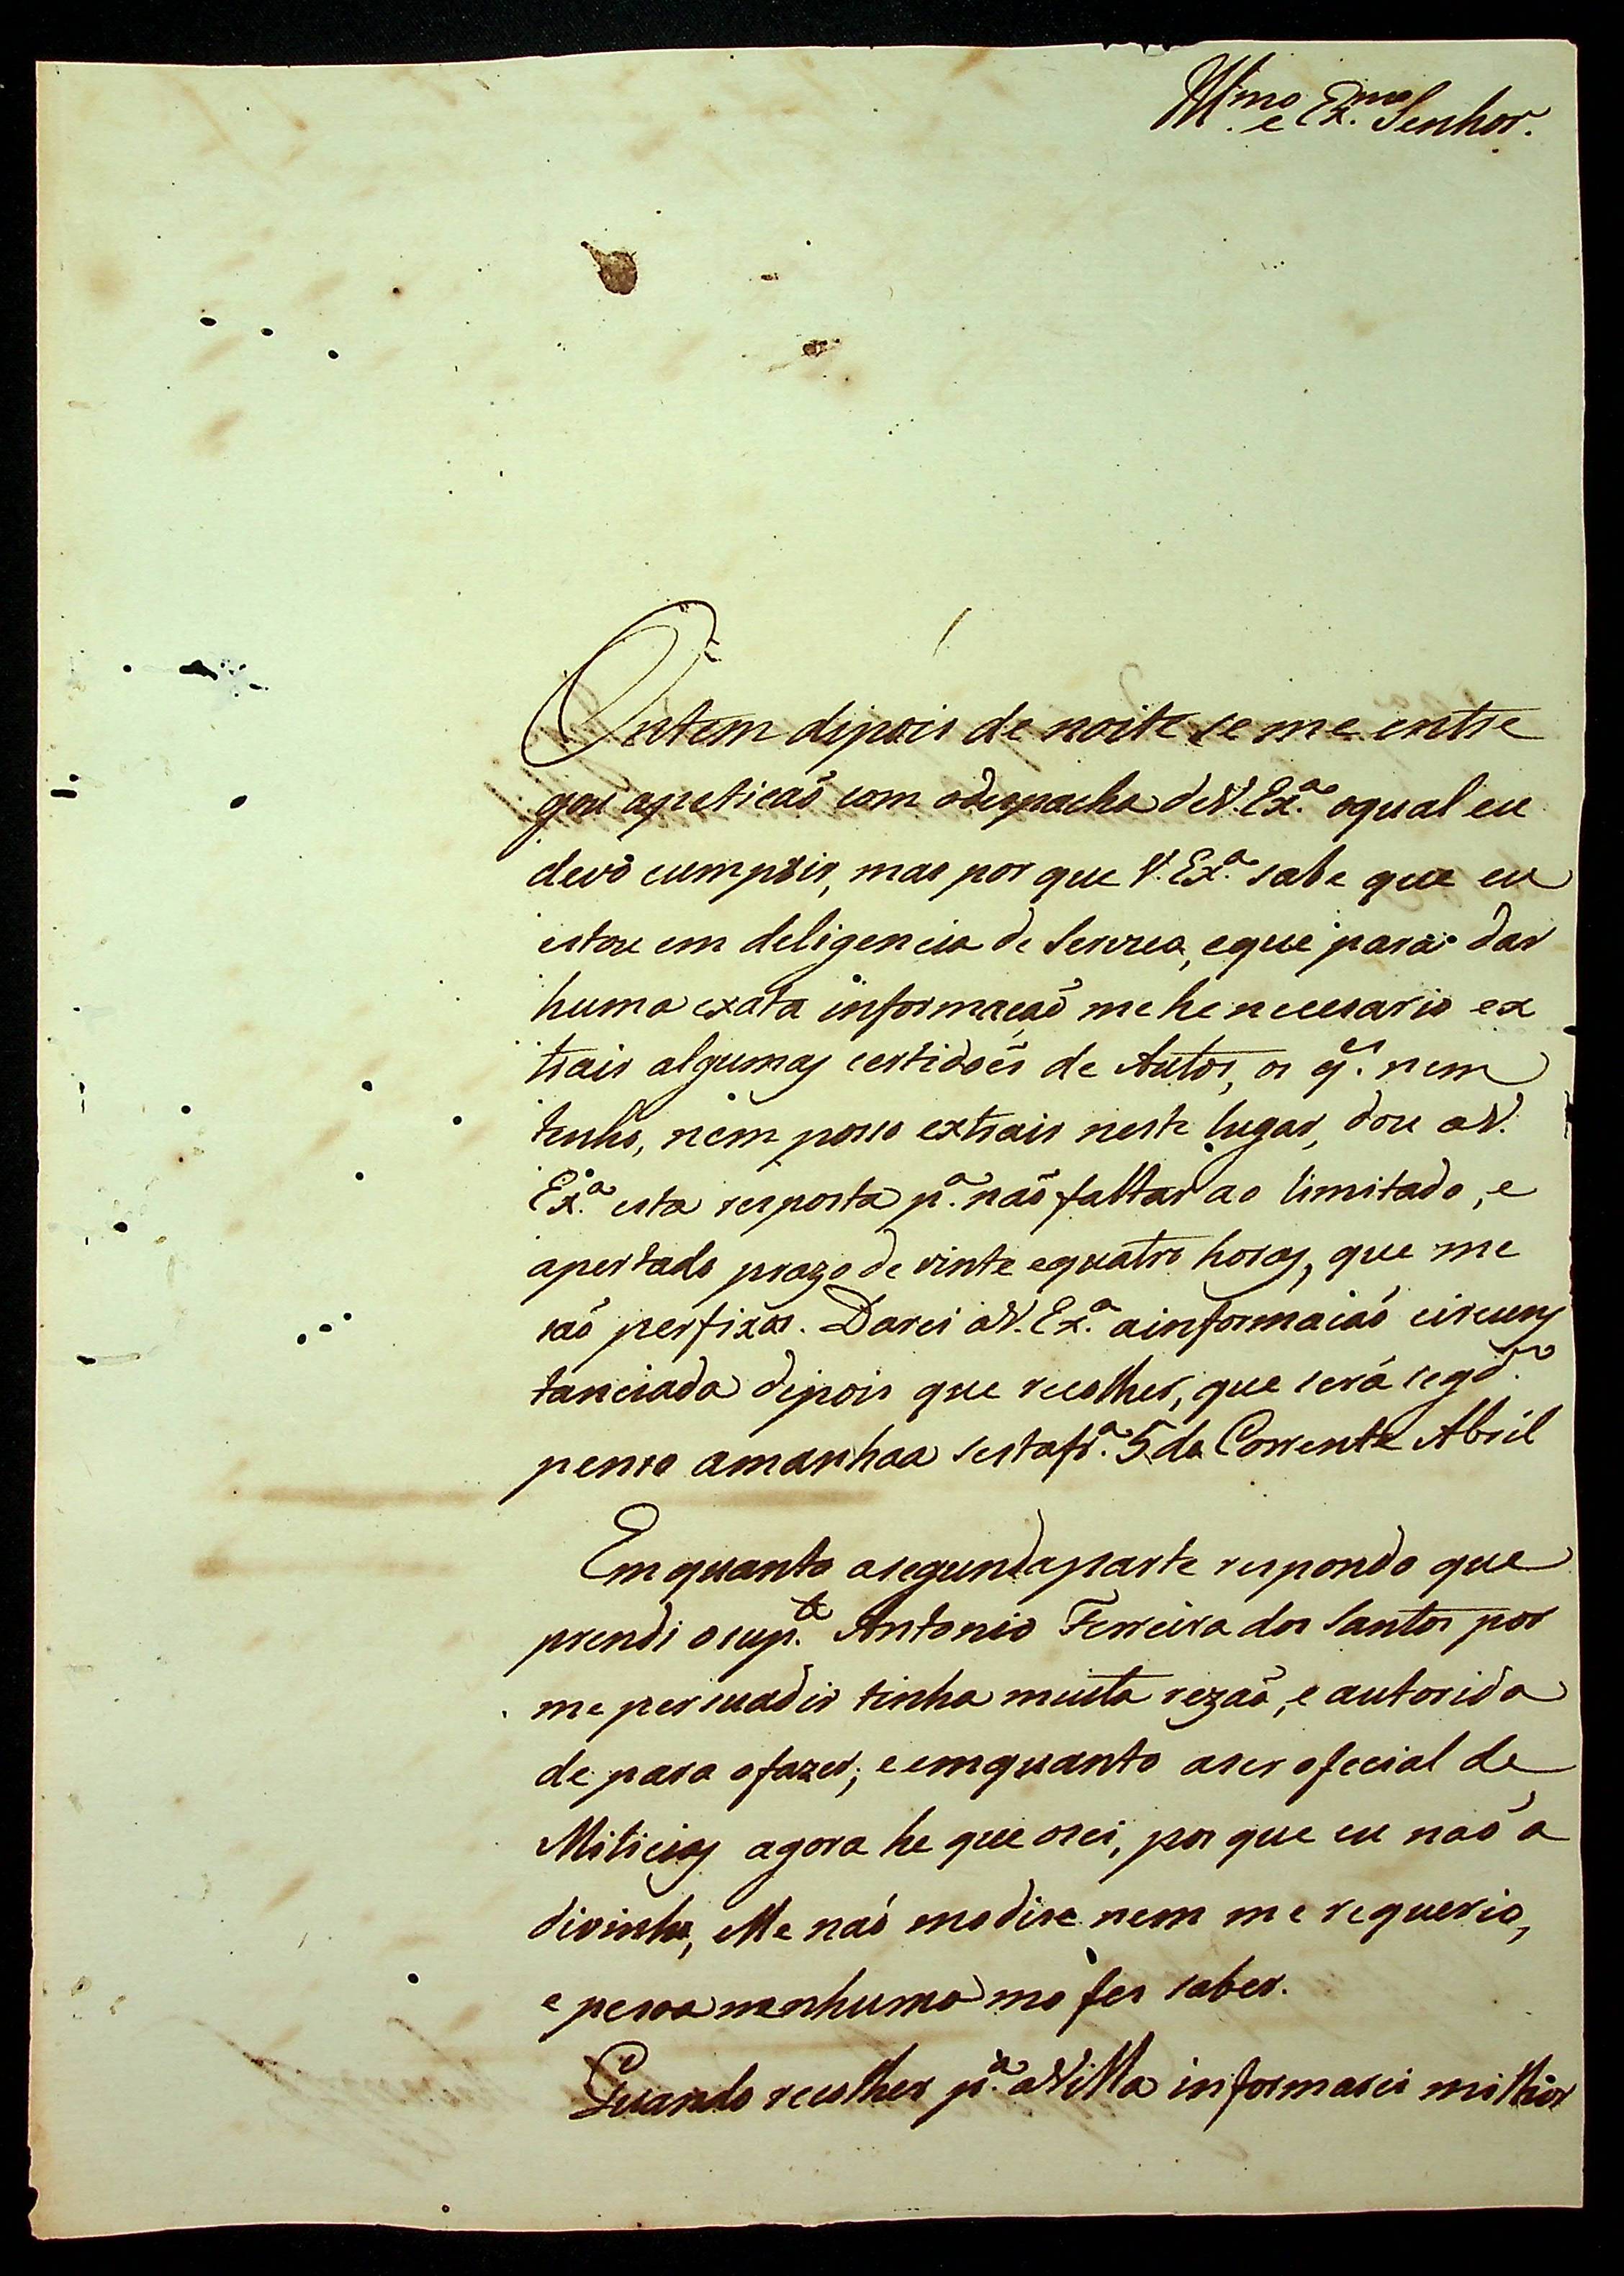 Ill.mo e Ex.mo Senhor.
Ontem dipois de noite se me entre
gou apeticaõ com odespacho deV. Ex.a oqual eu
devo cumprir, mas por que V. Ex.a sabe que eu
estou em deligencia de Serviço, eque para dar
huma exata informaçaõ me he necesario ex
trair algumas certidoẽs de Autos, os q.es nem
tenho, nem posso extrair neste lugar, dou aV.
Ex.a esta resposta p.a naõ faltar ao limitado, e
apertado prazo de vinte equatro horas, que me
saõ perfixas. Darei aV. Ex.a ainformaçaõ circuns
tanciada dipois que recolher, que será segd.o
penso amanhaa sestafr.a 5 do Corrente Abril
Emquanto asegundaparte respondo que
prendi osup.te Antonio Ferreira dos Santos por
me persuadir tinha muita rezaõ, e autorida
de para ofazer; e emquanto aser oficial de
Milicias agora he que osei, por que eu naõ a
divinho, elle naõ modise nem me requerio,
e pesoa nenhuma mo fes saber.
Quando recolher p.a aVilla informarei milhor